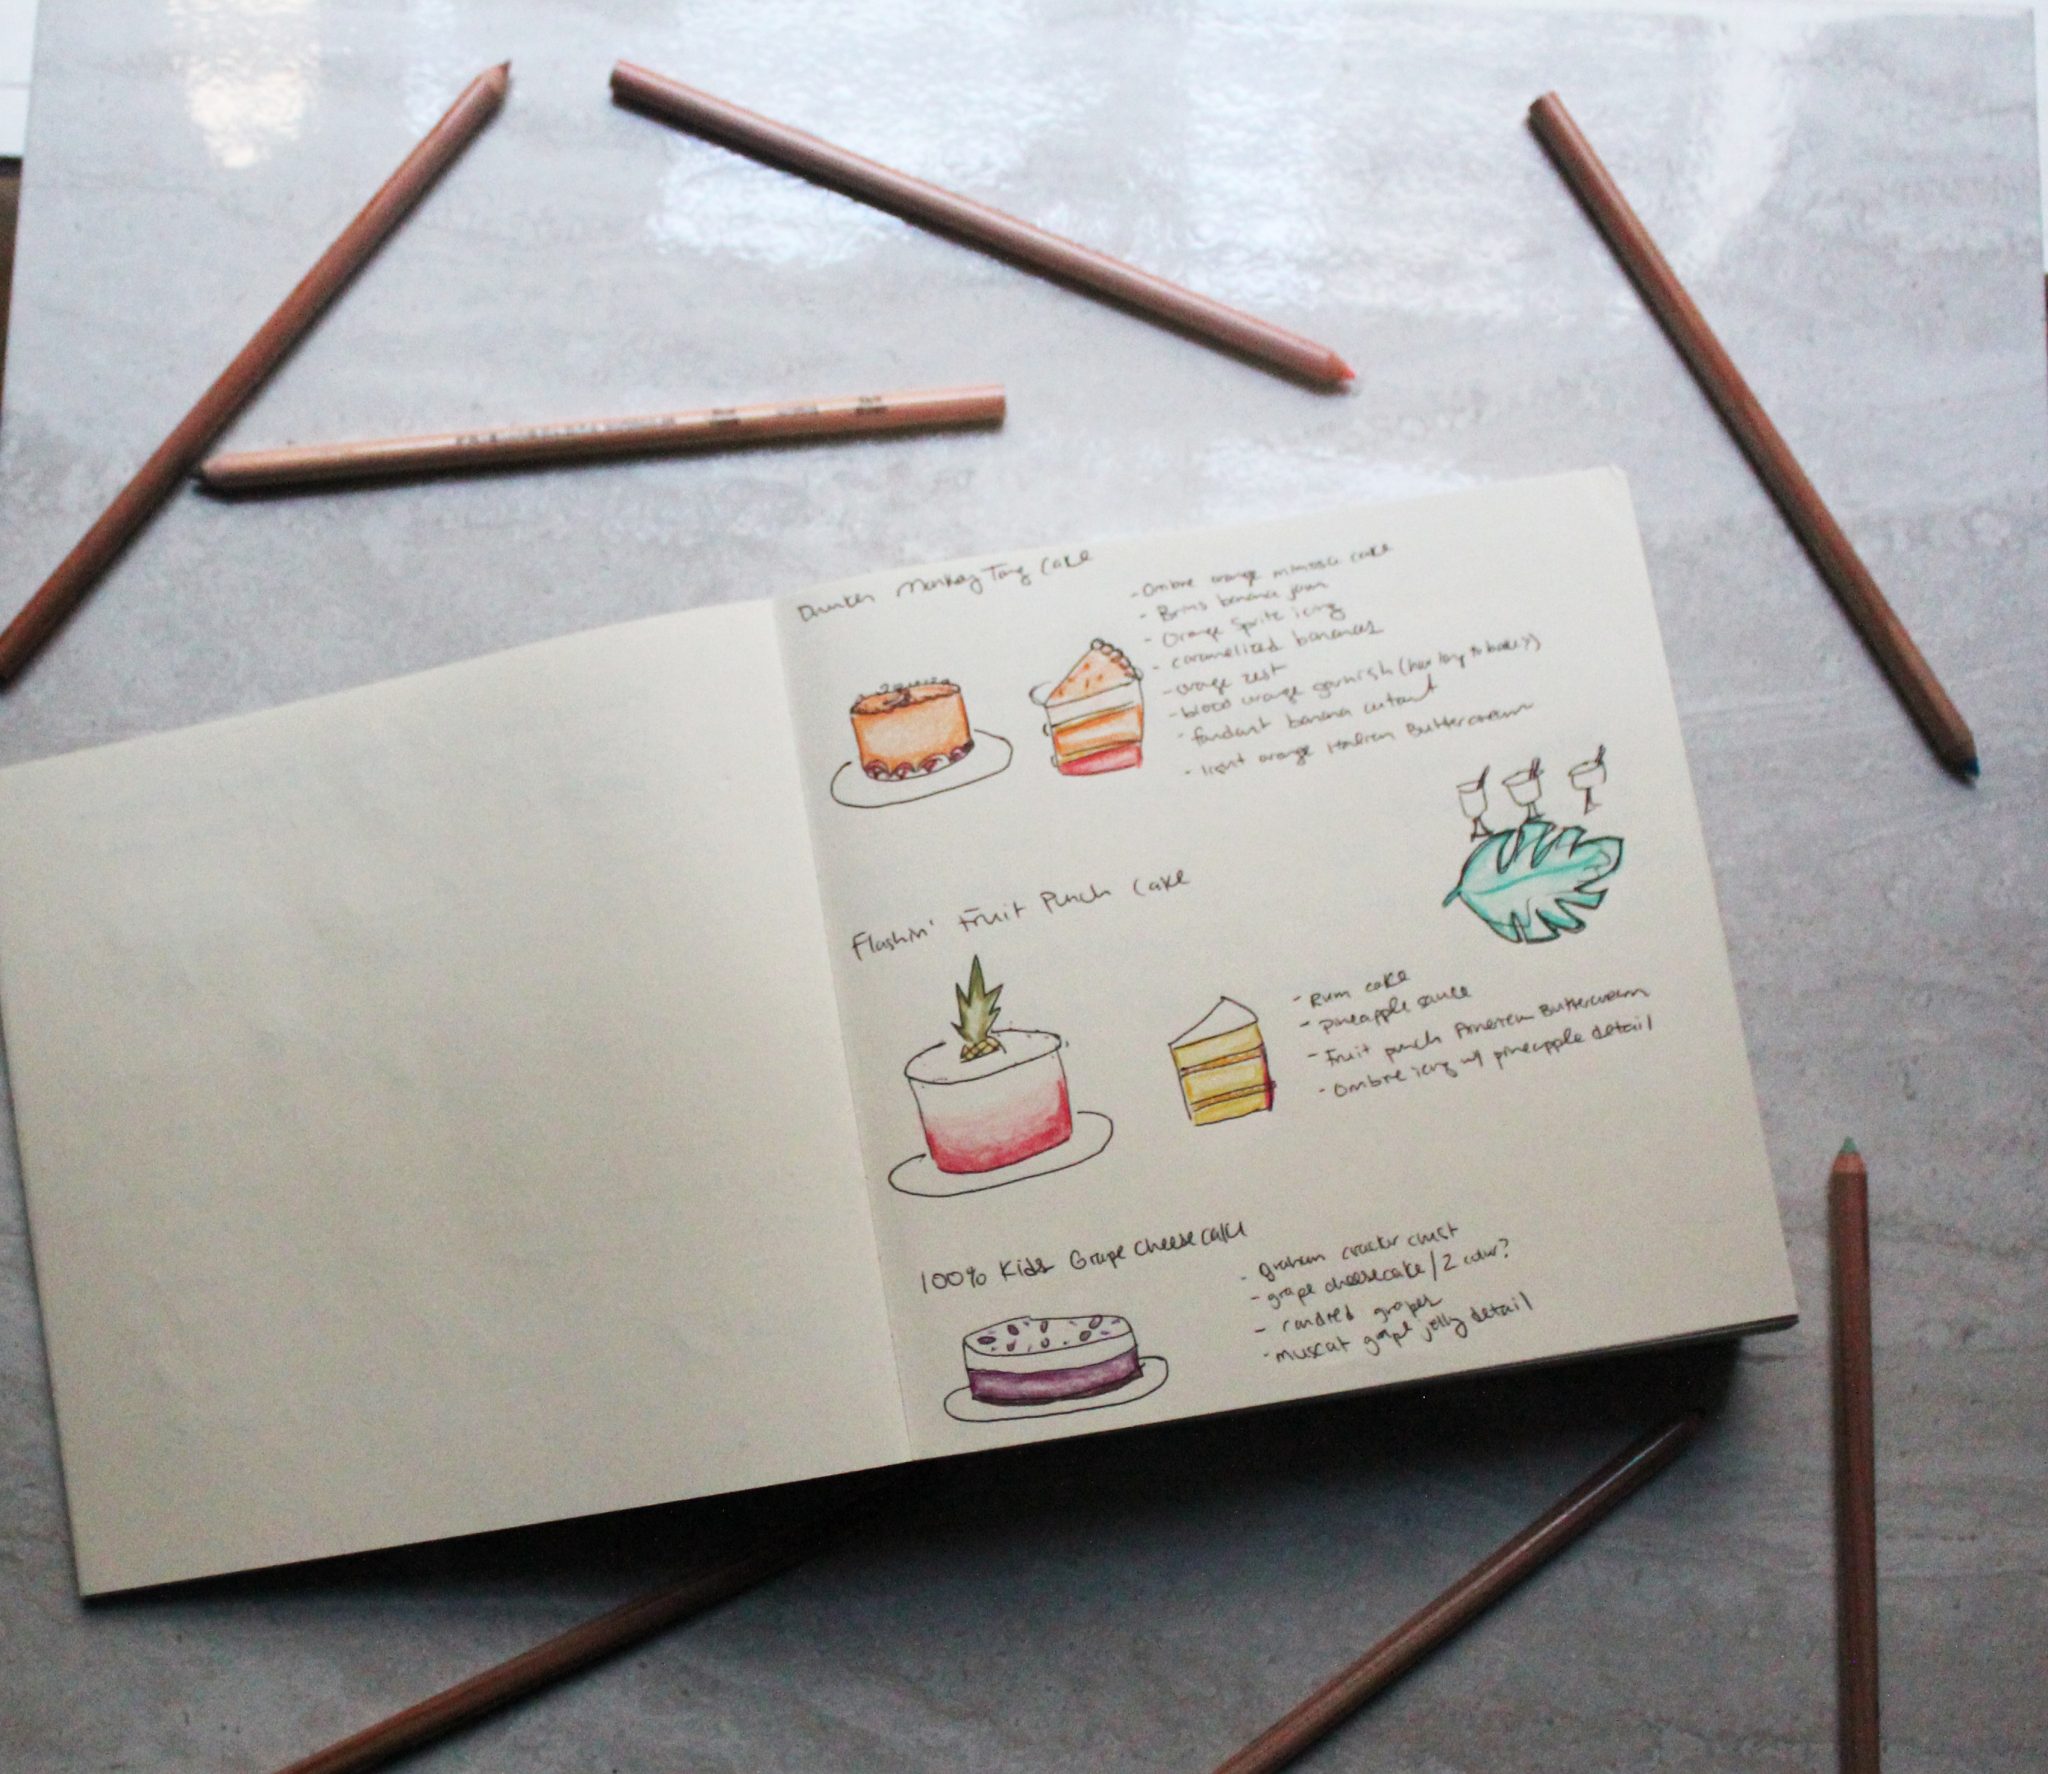 Drunken Monkey Tang Cake
- Ombre orange mimosa cake
- banana jam
- Orange Sprite icing
- caramelized bananas
- orange zest
- blood orange garnish (how long to bake?)
- fondant banana cutout
- light orange Italian Buttercream
Flashin' Fruit Punch Cake
- Rum cake
- pineapple sauce
- Fruit punch Buttercream
- Ombre icing w/ pineapple detail
100% Kids Grape Cheesecake
- graham cracker crust
- grape cheesecake / 2 color?
- candied grapes
- muscat grape jelly detail